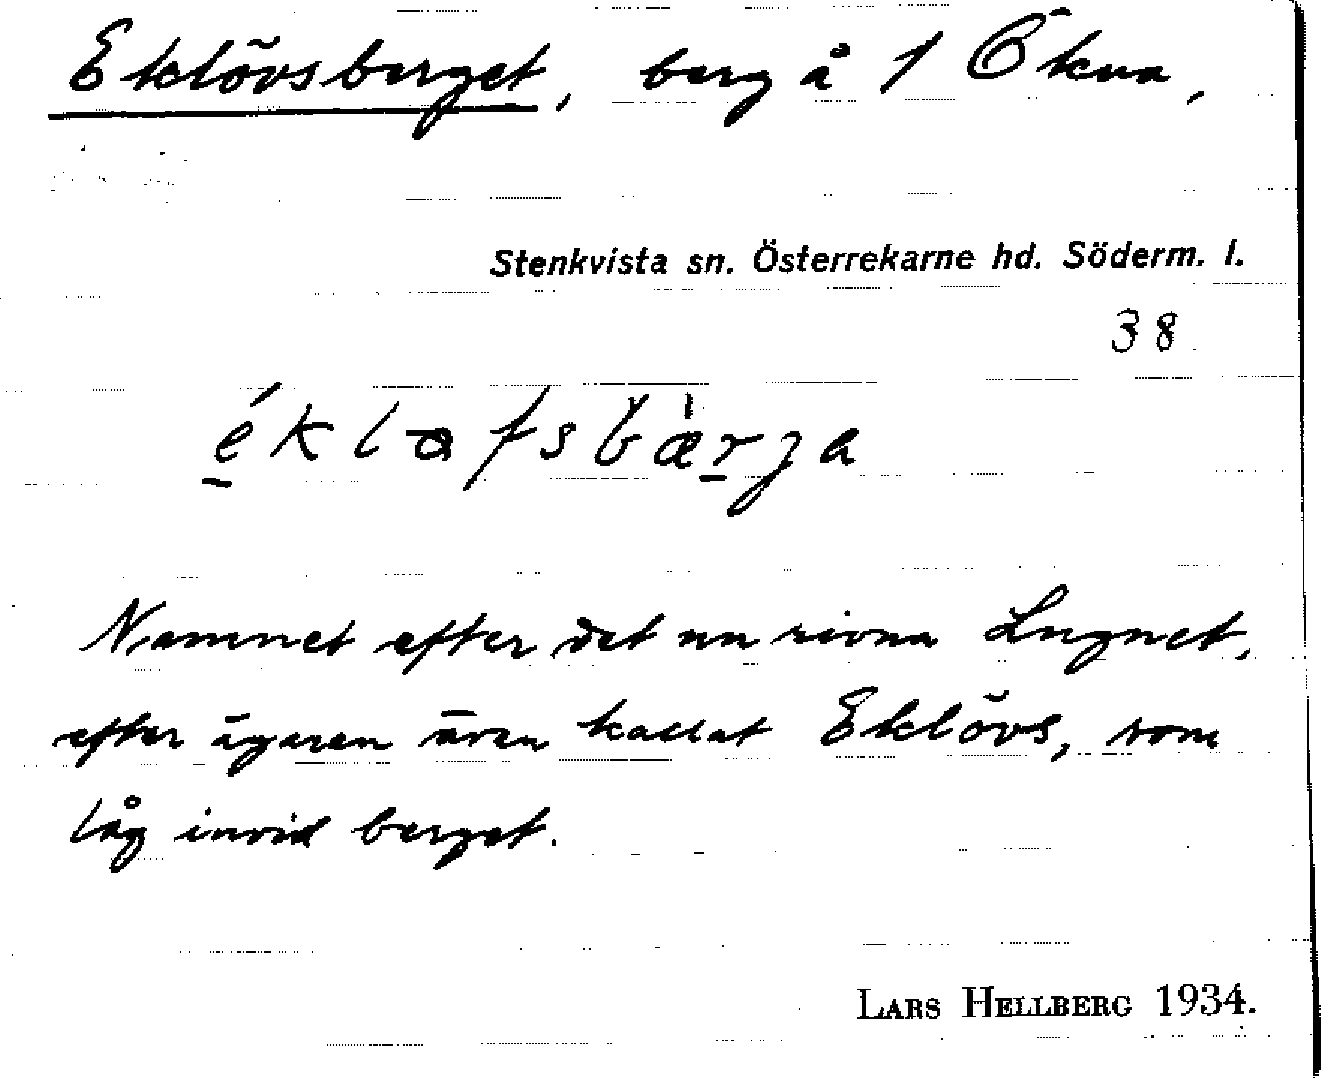 Eklövsberget, berg å 1 Ökna,
Stenkvista sn. Österrekarne hd. Söderm. l.
38
Namnet efter det nu rivna Lugnet,
efter ägaren även kallat Eklövs, som
låg invid berget.
LARS HELLBERG 1934.